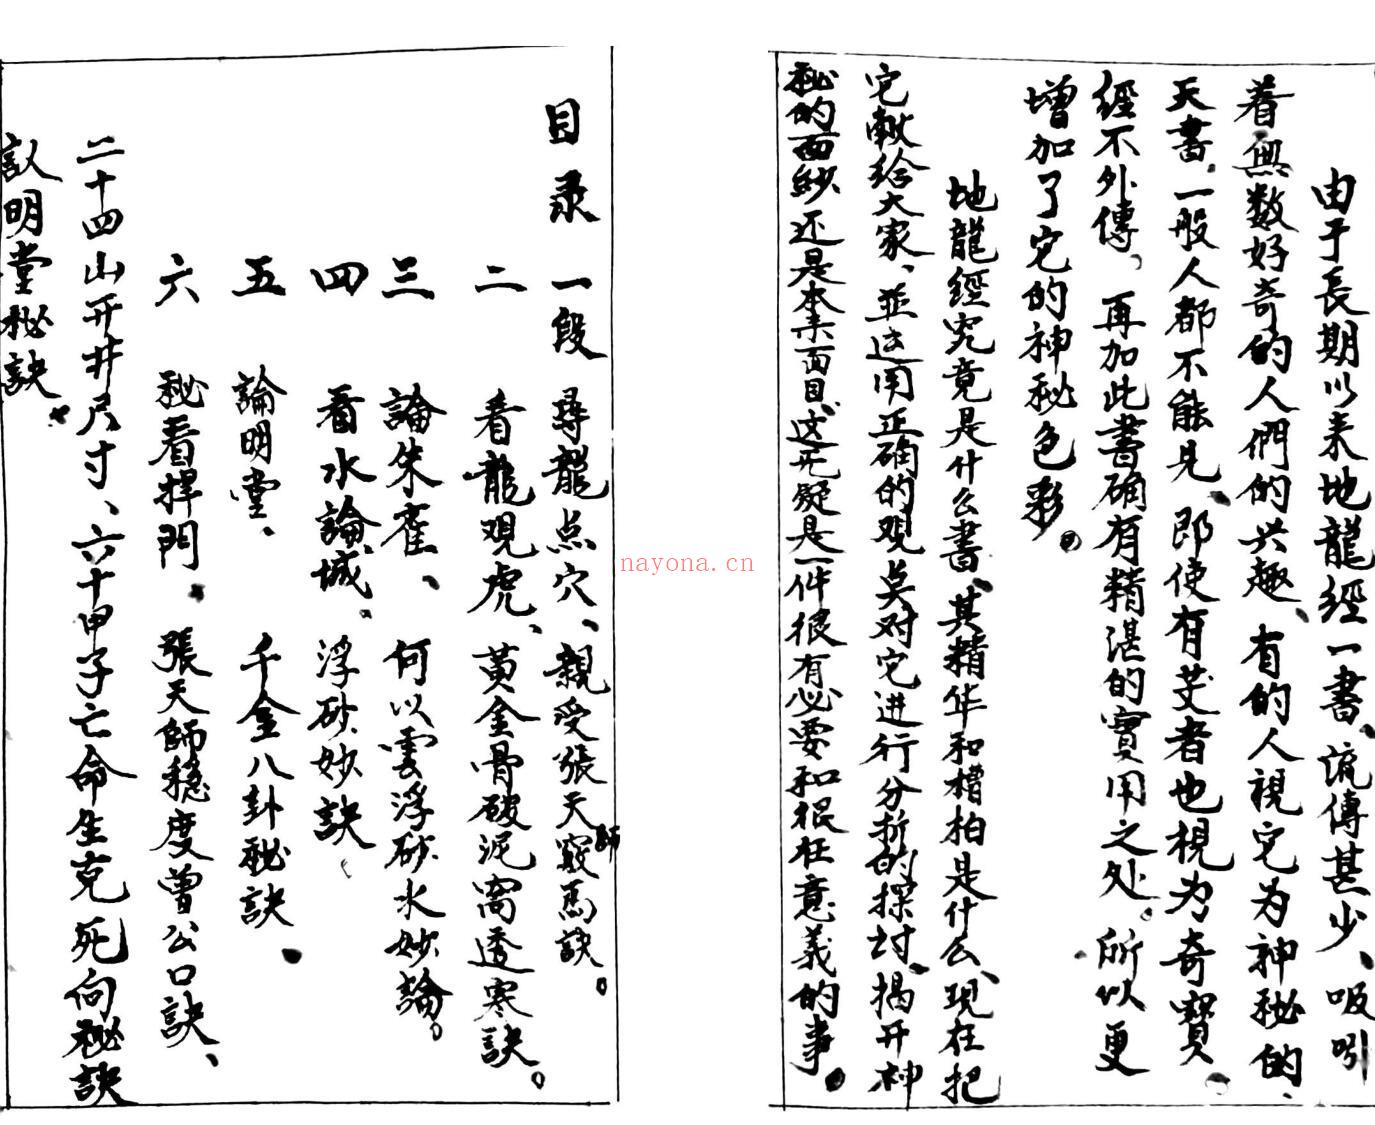 由于長期以来地龍經一書、流傳甚少、吸引
着無数好奇的人們的兴趣、有的人視它为神秘的、
天書、一般人都不能見、即使有芰者也視为奇寳
經不外傳、再加此書确有精湛的實用之处、所以更
增加了它的神秘色彩。
地龍經究竟是什么書、其精华和糟柏是什么、現在把
它献给大家、並运用正确的观点对它进行分析的探讨、揭开神
秘的面紗还是本来面目、这无疑是一件很有必要和很在意義的事。
目录 一段 尋龍点穴、親受張天師竅馬訣。
二 看龍观虎、黃金骨破泥窩透寒訣。
三 論朱雀、何以雲浮砂水妙論。
四 看水論城、浮砂妙訣、
五 論明堂、千金八卦秘訣。
六 秘看捍門、張天師穏度曾公口訣、
二十四山开井尺寸、六十甲子亡命生克死向秘訣
訍明堂秘訣。
nayona.cn